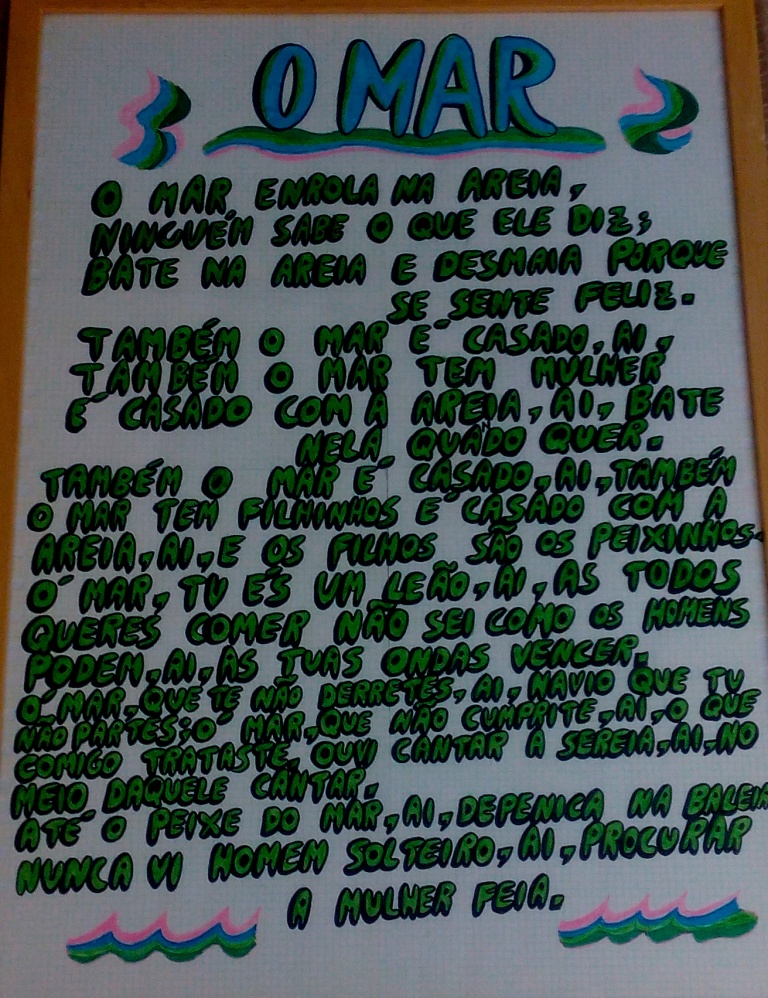 O MAR
O MAR ENROLA NA AREIA,
NINGUÉM SABE O QUE ELE DIZ;
BATE NA AREIA E DESMAIA PORQUE
SE SENTE FELIZ.
TAMBÉM O MAR É CASADO, AI,
TAMBÉM O MAR TEM MULHER
É CASADO COM A AREIA, AI, BATE
NELA QUÃDO QUER.
TAMBÉM O MAR É CASADO, AI, TAMBÉM
O MAR TEM FILHINHOS É CASADO COM A
AREIA, AI, E OS FILHOS SÃO OS PEIXINHOS.
Ó MAR, TU ÉS UM LEÃO, AI, AS TODOS
QUERES COMER NÃO SEI COMO OS HOMENS
PODEM, AI, AS TUAS ONDAS VENCER.
Ó MAR, QUE TE NÃO DERRETES, AI, NAVIO QUE TU
NÃO PARTES; Ó MAR, QUE NÃO CUMPRITE, AI, O QUE
COMIGO TRATASTE, OUVI CANTAR A SEREIA, AI, NO
MEIO DAQUELE CANTAR.
ATÉ O PEIXE DO MAR, AI, DEPENICA NA BALEIA
NUNCA VI HOMEM SOLTEIRO, AI, PROCURAR
A MULHER FEIA.